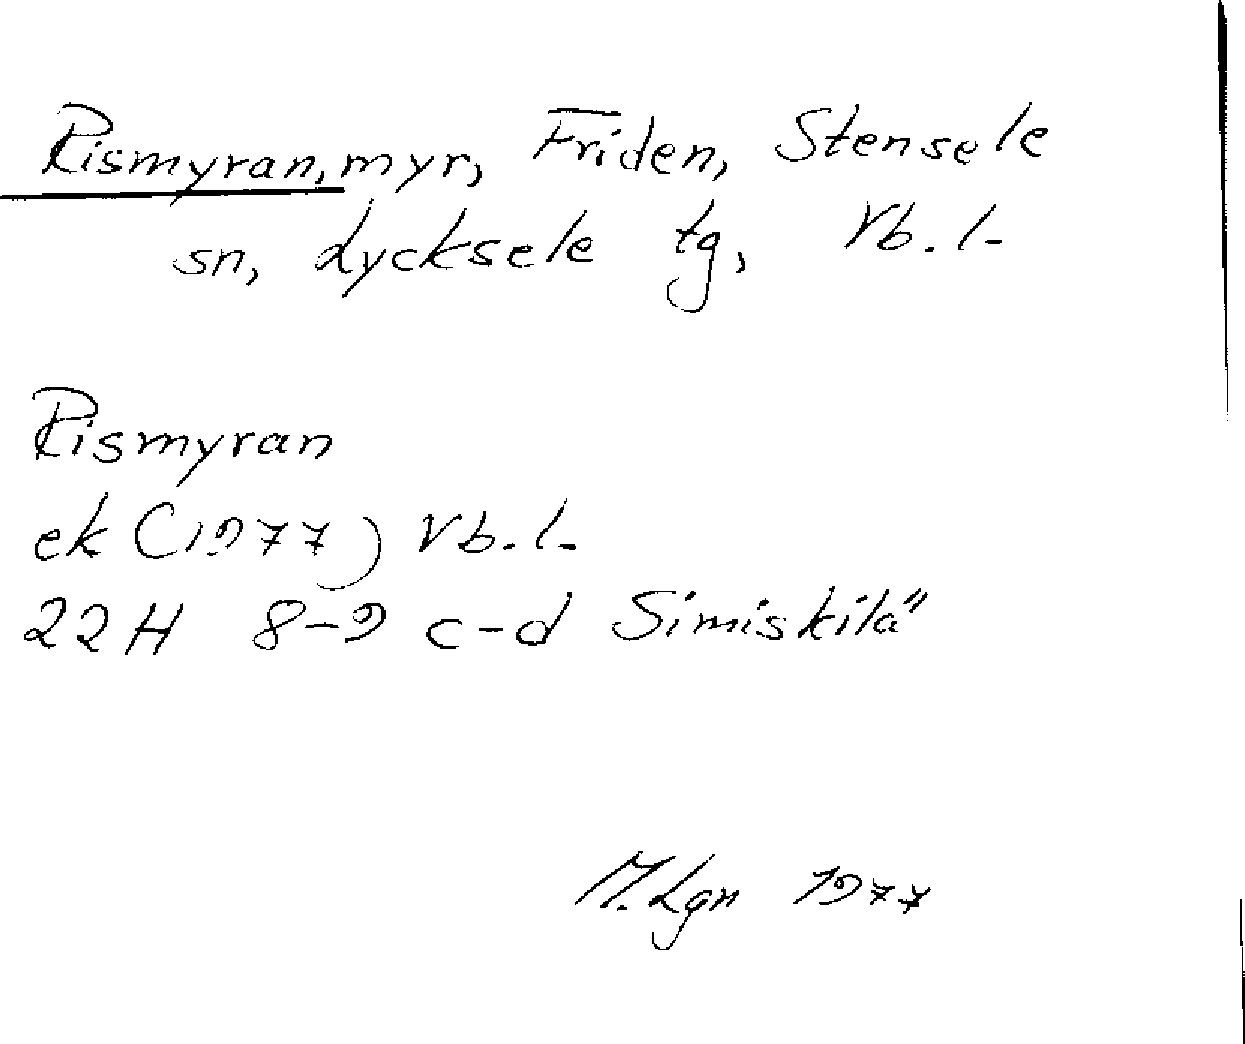 Rismyran, myr, Friden, Stensele
sn, Lycksele tg, Vb. l.
Rismyran
ek (1977) Vb. l.
22H 8-9 c-d Simiskilä
M. Lgn 1977